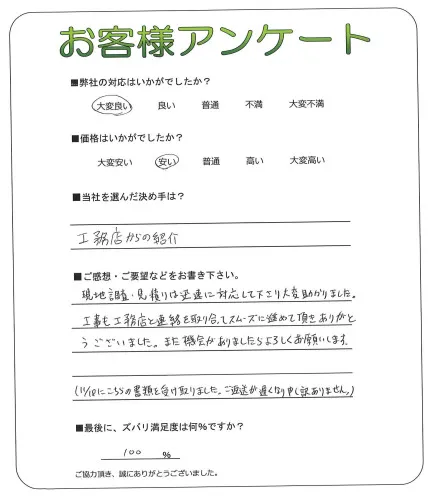 お客様アンケート
■弊社の対応はいかがでしたか?
大変良い 良い 普通 不満 大変不満
■価格はいかがでしたか?
大変安い 安い 普通 高い 大変高い
■当社を選んだ決め手は?
工務店からの紹介
■ご感想・ご要望などをお書き下さい。
現地調査・見積りは迅速に対応して下さり大変助かりました。
工事も工務店と連絡を取り合いスムーズに進めて頂きありがと
うございました。また機会がありましたらよろしくお願いします。
(11/10にこちらの書類を受け取りました。ご返送が遅くなり申し訳ありません。)
■最後に、ズバリ満足度は何%ですか?
100 %
ご協力頂き、誠にありがとうございました。